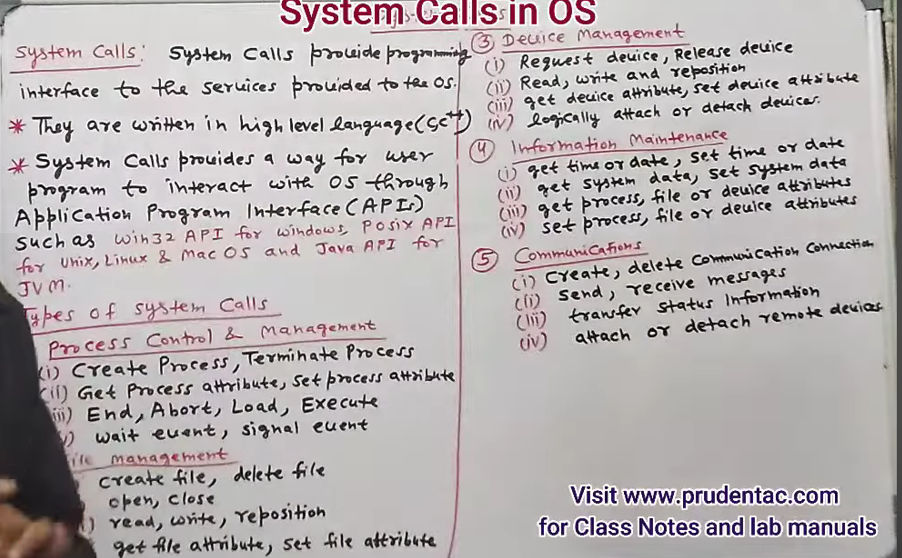 System Calls in OS
System Calls: System Calls provide programming
interface to the services provided to the OS.
* They are written in high level language (C, C++)
* System Calls provides a way for user
program to interact with OS through
Application Program Interface (APIs)
such as Win32 API for windows, POSIX API
for Unix, Linux & Mac OS and Java API for
JVM.
Types of System Calls
Process Control & Management
(i) Create Process, Terminate Process
(ii) Get Process attribute, set process attribute
iii) End, Abort, Load, Execute
) wait event, signal event
ile management
create file, delete file
open, close
) read, write, reposition
get file attribute, set file attribute
③ Device Management
(i) Request device, Release device
(ii) Read, write and reposition
(iii) get device attribute, set device attribute
(iv) logically attach or detach devices.
④ Information Maintenance
(i) get time or date, set time or date
(ii) get system data, set system data
(iii) get process, file or device attributes
(iv) set process, file or device attributes
⑤ Communications
(i) Create, delete Communication Connection
(ii) send, receive messages
(iii) transfer status Information
(iv) attach or detach remote devices
Visit www.prudentac.com
for Class Notes and lab manuals